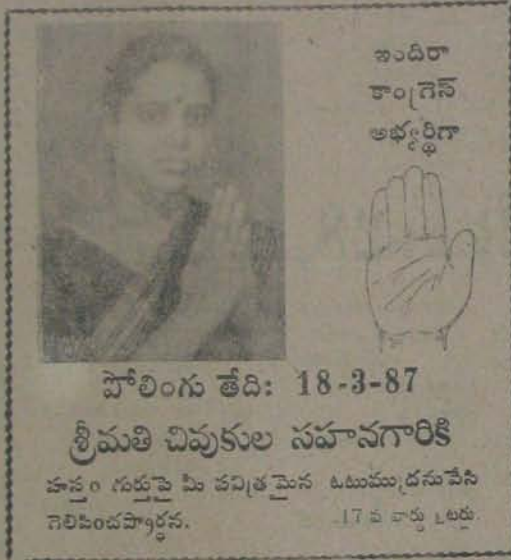 ఇందిరా
కాంగ్రెస్
అభ్యర్థిగా
పోలింగు తేది: 18-3-87
శ్రీమతి చివుకుల సహనగారికి
హస్తం గుర్తుపై మీ పవిత్రమైన ఓటుముద్రనువేసి
గెలిపించప్రార్థన.
17 వ వార్డు ఓటర్లు.